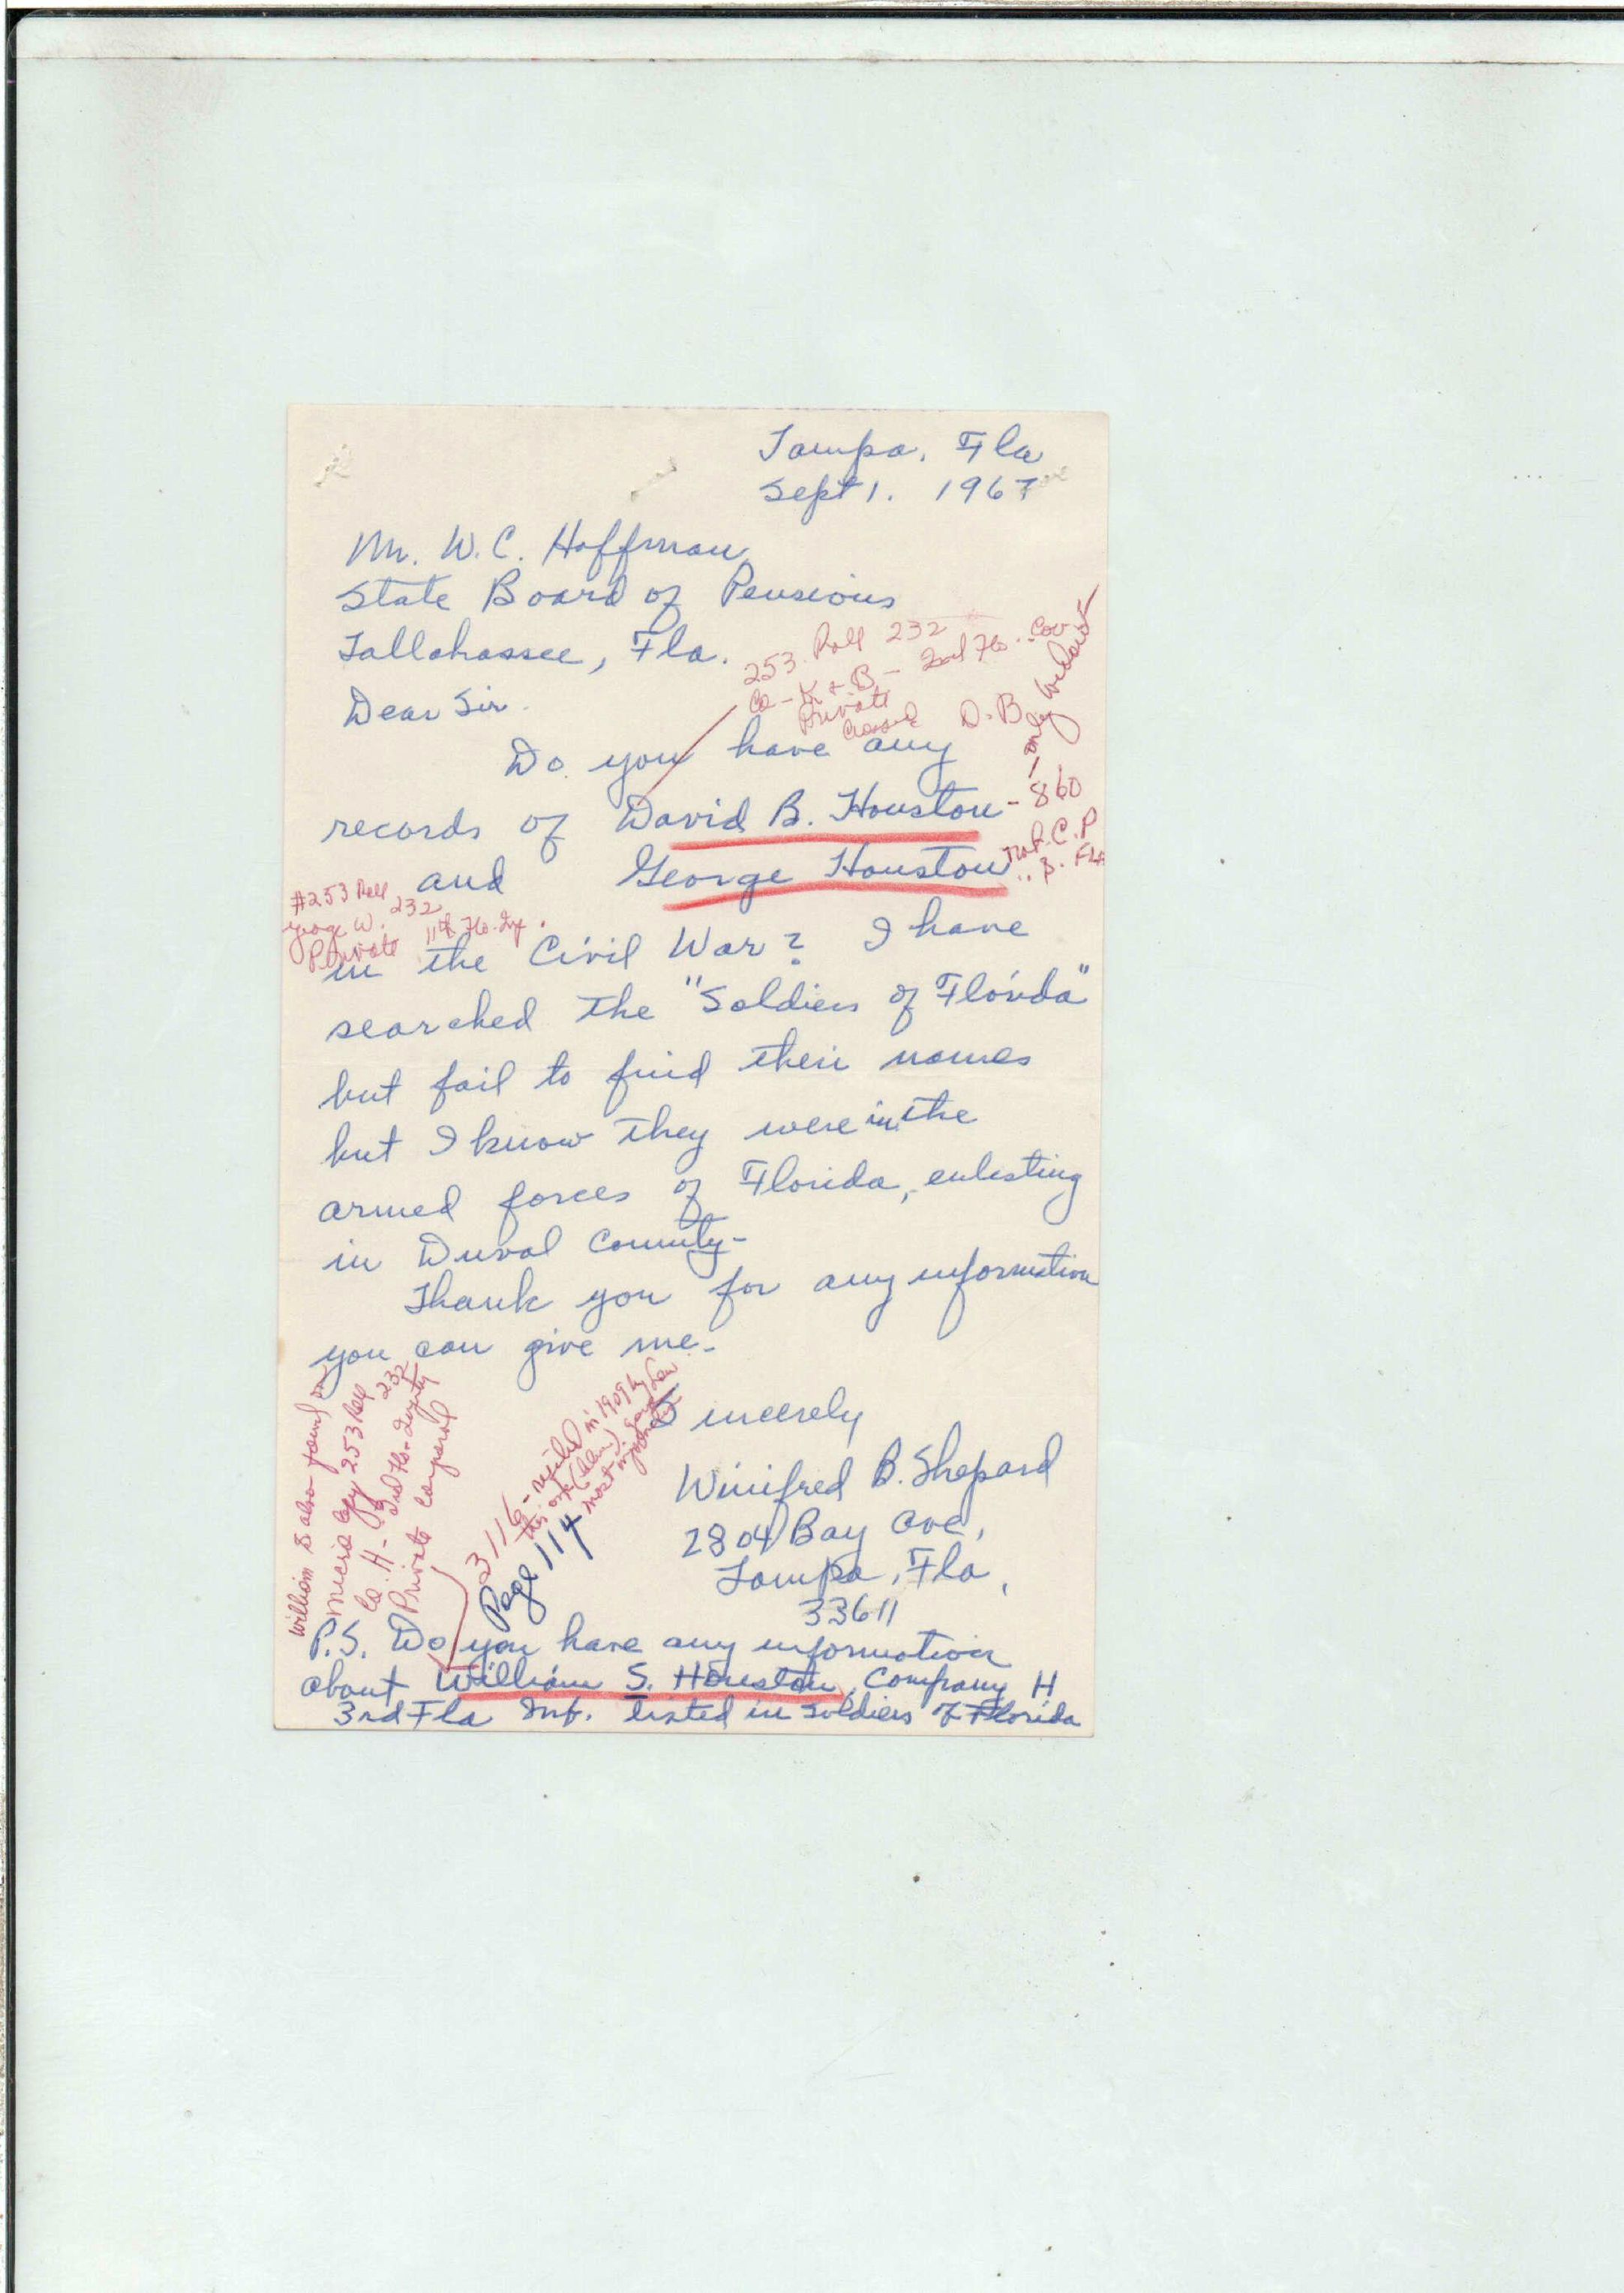 Tampa, Fla
Sept 1. 1967
Mr. W.C. Hoffman
State Board of Pensions
Tallahassee, Fla.
Dear Sir.
253 Roll 232
Co - K + B -
Private
D. B.
only
Do you have any
records of David B. Houston - 860
and George Houston
#253 Roll
232
George W.
11th Flo. Inf.
Private
in the Civil War? I have
searched the "Soldiers of Florida"
but fail to find their names
but I know they were in the
armed forces of Florida, enlisting
in Duval County-
Thank you for any information
you can give me-
Sincerely
Winifred B. Shepard
2804 Bay Ave,
Tampa, Fla,
33611
William S also found on
micro copy 253 Roll 232
Co. H - 3rd Flo. Infantry
Private
3116 - in 1909
Page 114
P.S. Do you have any information
about William S. Houston, Company H
3rd Fla Inf. listed in Soldiers of Florida